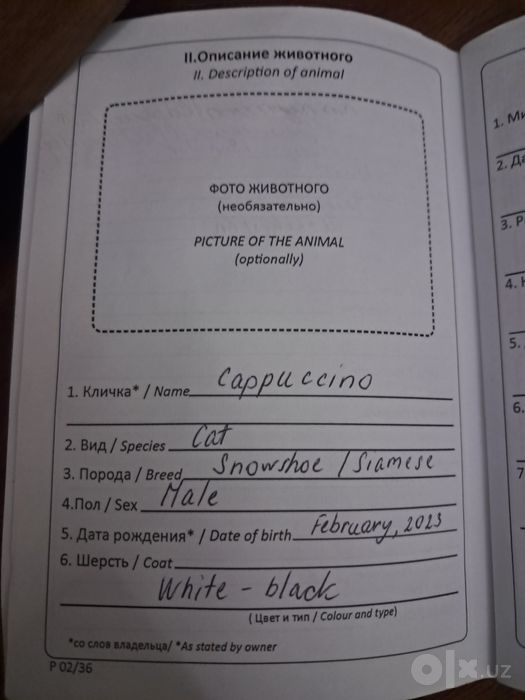 II.Описание животного
II. Description of animal
ФОТО ЖИВОТНОГО
(необязательно)
PICTURE OF THE ANIMAL
(optionally)
1. Кличка* / Name Cappuccino
2. Вид / Species Cat
3. Порода / Breed Snowshoe / Siamese
4.Пол / Sex Male
5. Дата рождения* / Date of birth February, 2023
6. Шерсть / Coat
White - black
( Цвет и тип / Colour and type)
*со слов владельца/ *As stated by owner
P 02/36
1.
2.
3.
4.
5.
6.
7
olx.uz